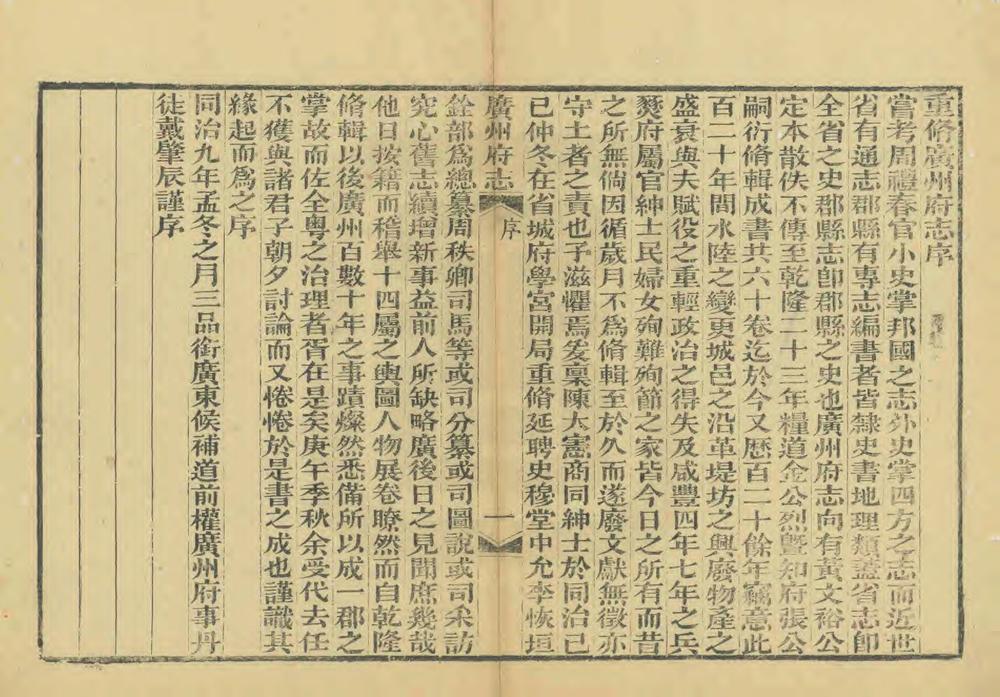 重脩廣州府志序
嘗考周禮春官小史掌邦國之志外史掌四方之志而近世
省有通志郡縣有專志編書者皆隸史書地理類蓋省志卽
全省之史郡縣志卽郡縣之史也廣州府志向有黃文裕公
定本散佚不傳至乾隆二十三年糧道金公烈曁知府張公
嗣衍脩輯成書共六十卷迄於今又歷百二十餘年竊意此
百二十年間水陸之變更城邑之沿革堤坊之興廢物產之
盛衰與夫賦役之重輕政治之得失及咸豐四年七年之兵
燹府屬官紳士民婦女殉難殉節之家皆今日之所有而昔
之所無倘因循歲月不爲脩輯至於久而遂廢文獻無徵亦
守土者之責也予滋懼焉爰稟陳大憲商同紳士於同治己
巳仲冬在省城府學宮開局重脩延聘史穆堂中允李恢垣
廣州府志 序 一
銓部爲總纂周秩卿司馬等或司分纂或司圖說或司采訪
究心舊志續增新事益前人所缺略廣後日之見聞庶幾哉
他日按籍而稽舉十四屬之輿圖人物展卷瞭然而自乾隆
脩輯以後廣州百數十年之事蹟燦然悉備所以成一郡之
掌故而佐全粵之治理者胥在是矣庚午季秋余受代去任
不獲與諸君子朝夕討論而又惓惓於是書之成也謹識其
緣起而爲之序
同治九年孟冬之月三品銜廣東候補道前權廣州府事丹
徒戴肇辰謹序